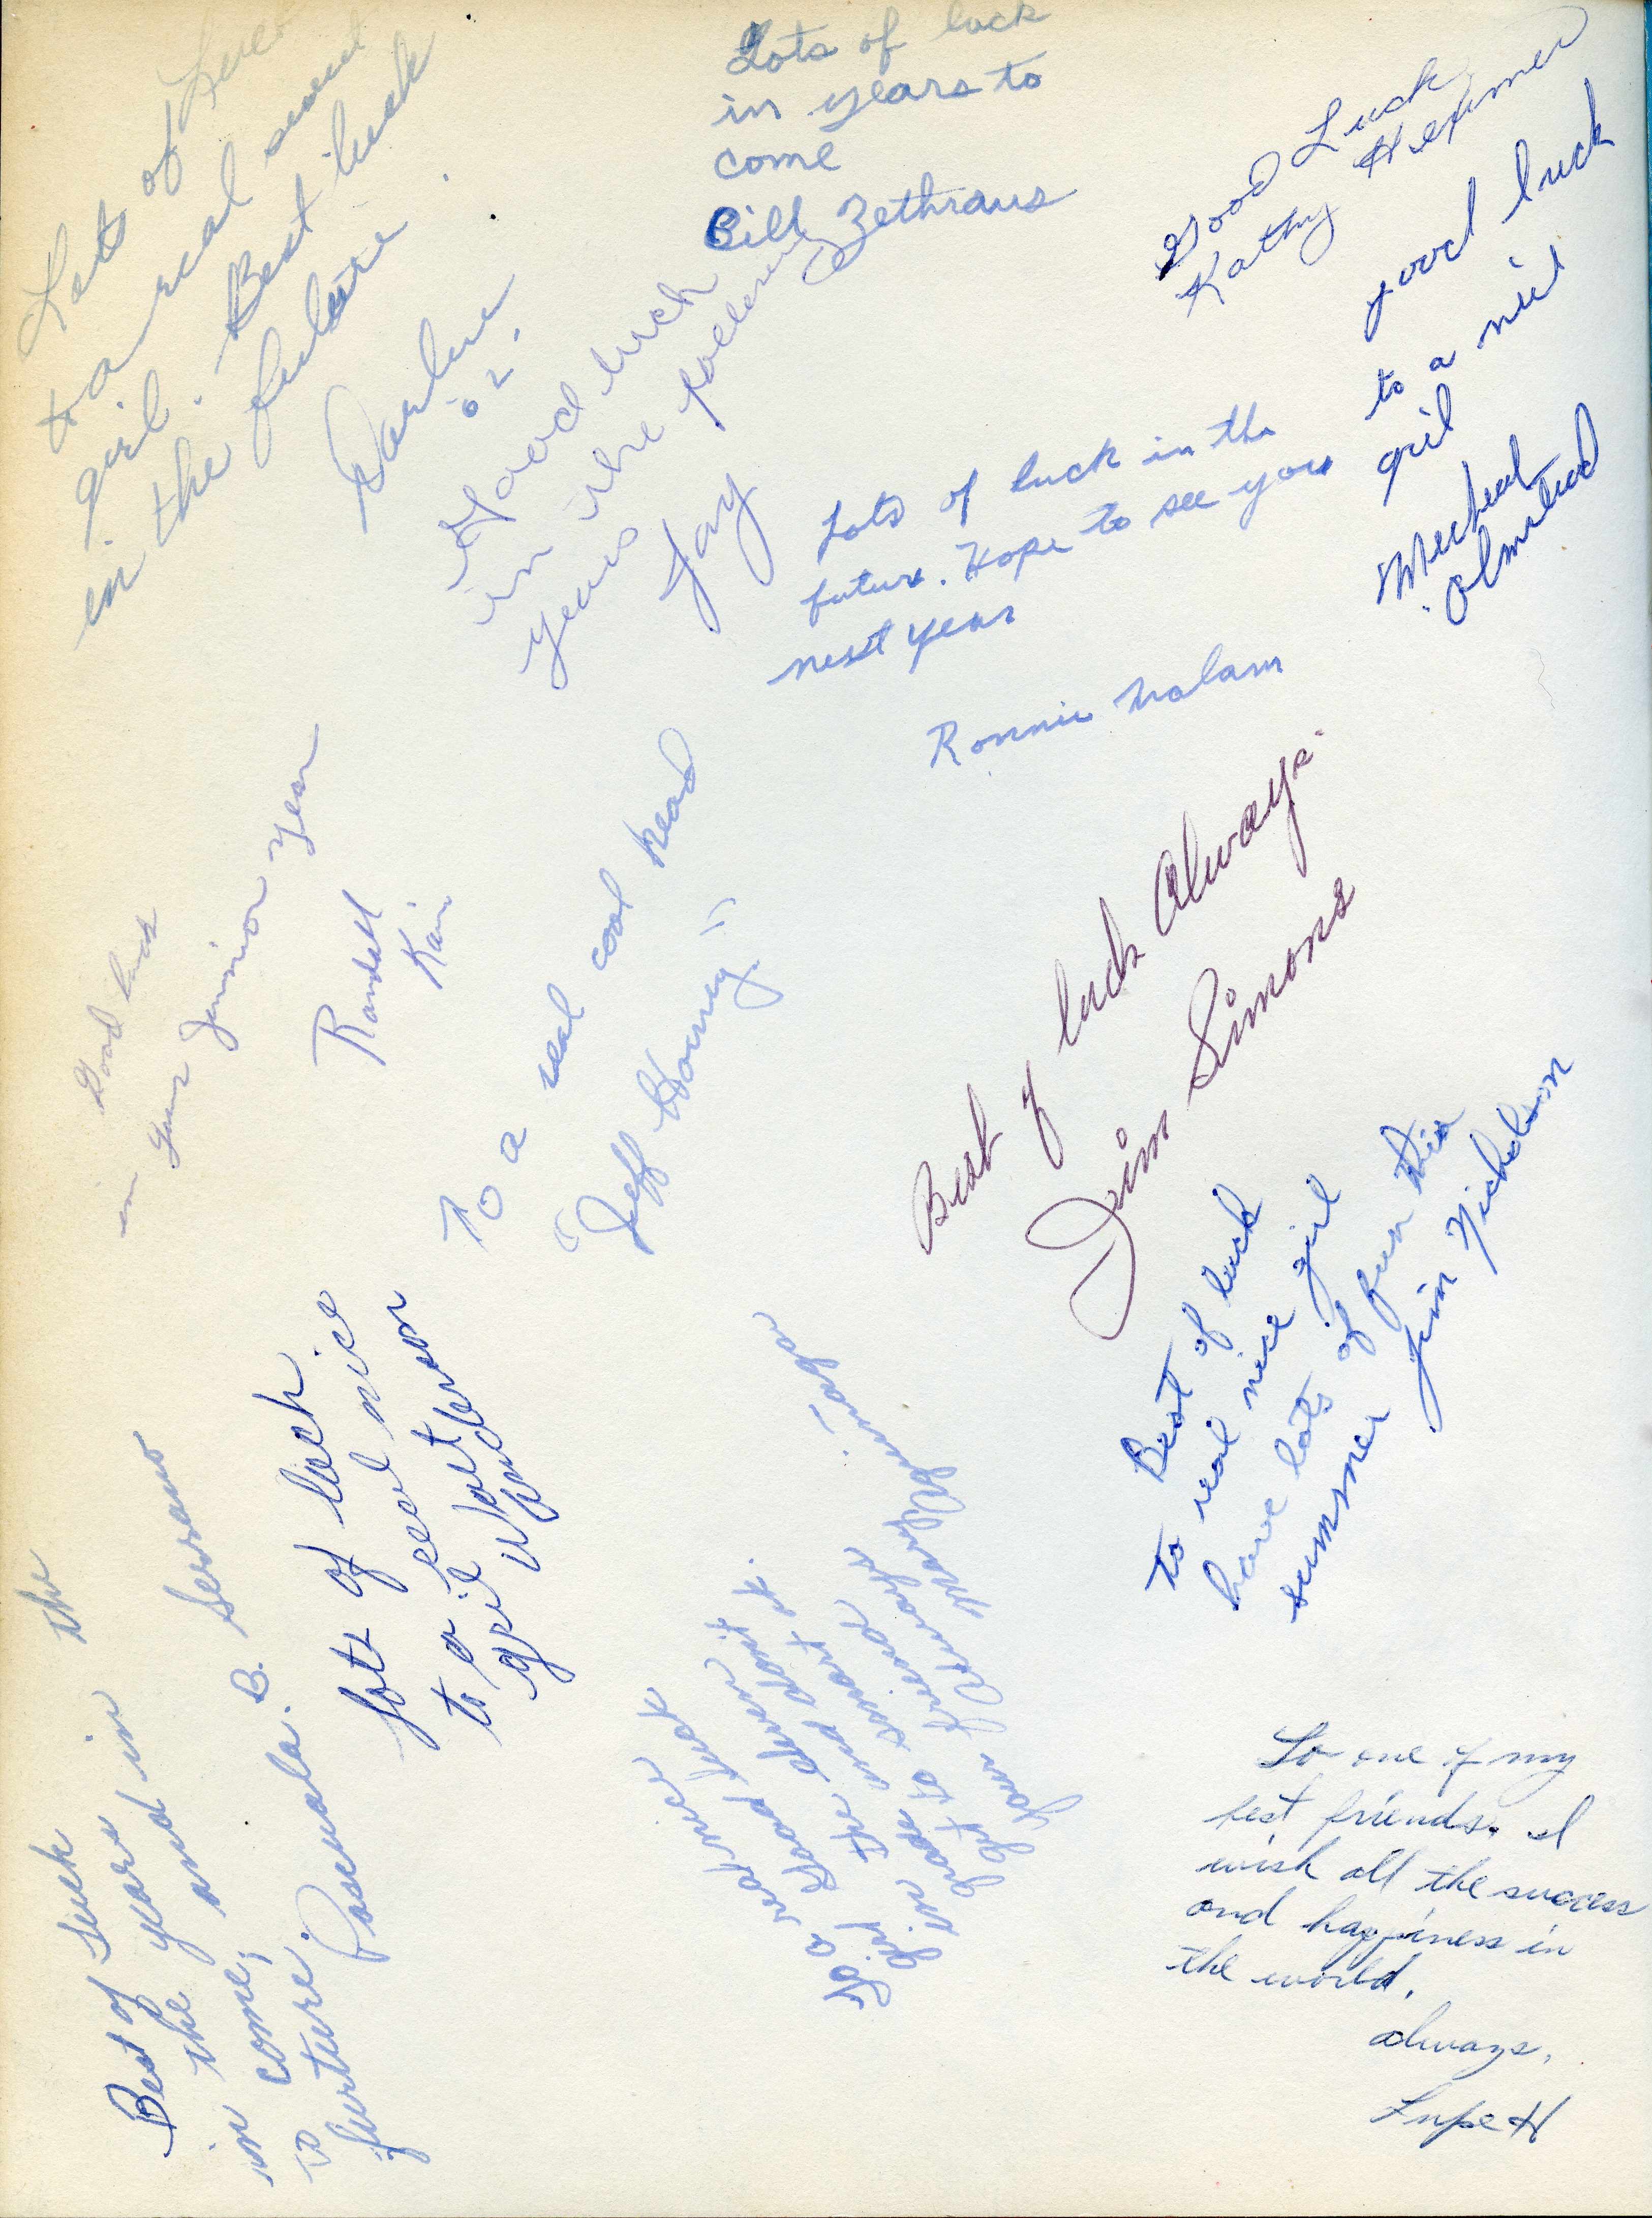 Lots of Luck
to a real sweet
girl. Best luck
in the future.
Darlene
'62'
Lots of luck
in years to
come
Bill Zethraus
Good Luck
Kathy Hexamer
good luck
to a nice
girl
Olmsted
Good luck
in the
years
Jay
Lots of luck in the
future. Hope to see you
next year
Ronnie
Good luck
in your Junior Year
Randall
To a real cool head
"Jeff Horney"
Best of luck Always.
Jim Simons
Best of luck
to real nice girl
have lots of fun this
summer Jim Nicholson
lots of luck
to a real nice
girl
Best of luck in the
in the years
to come, and in the
furture. Pascuala. B. Serrano
To a real nice
girl Good luck
in the
grade and don't
get to smart
Your friend Always
Mary
To one of my
best friends. I
wish all the success
and happiness in
the world.
always,
Lupe H